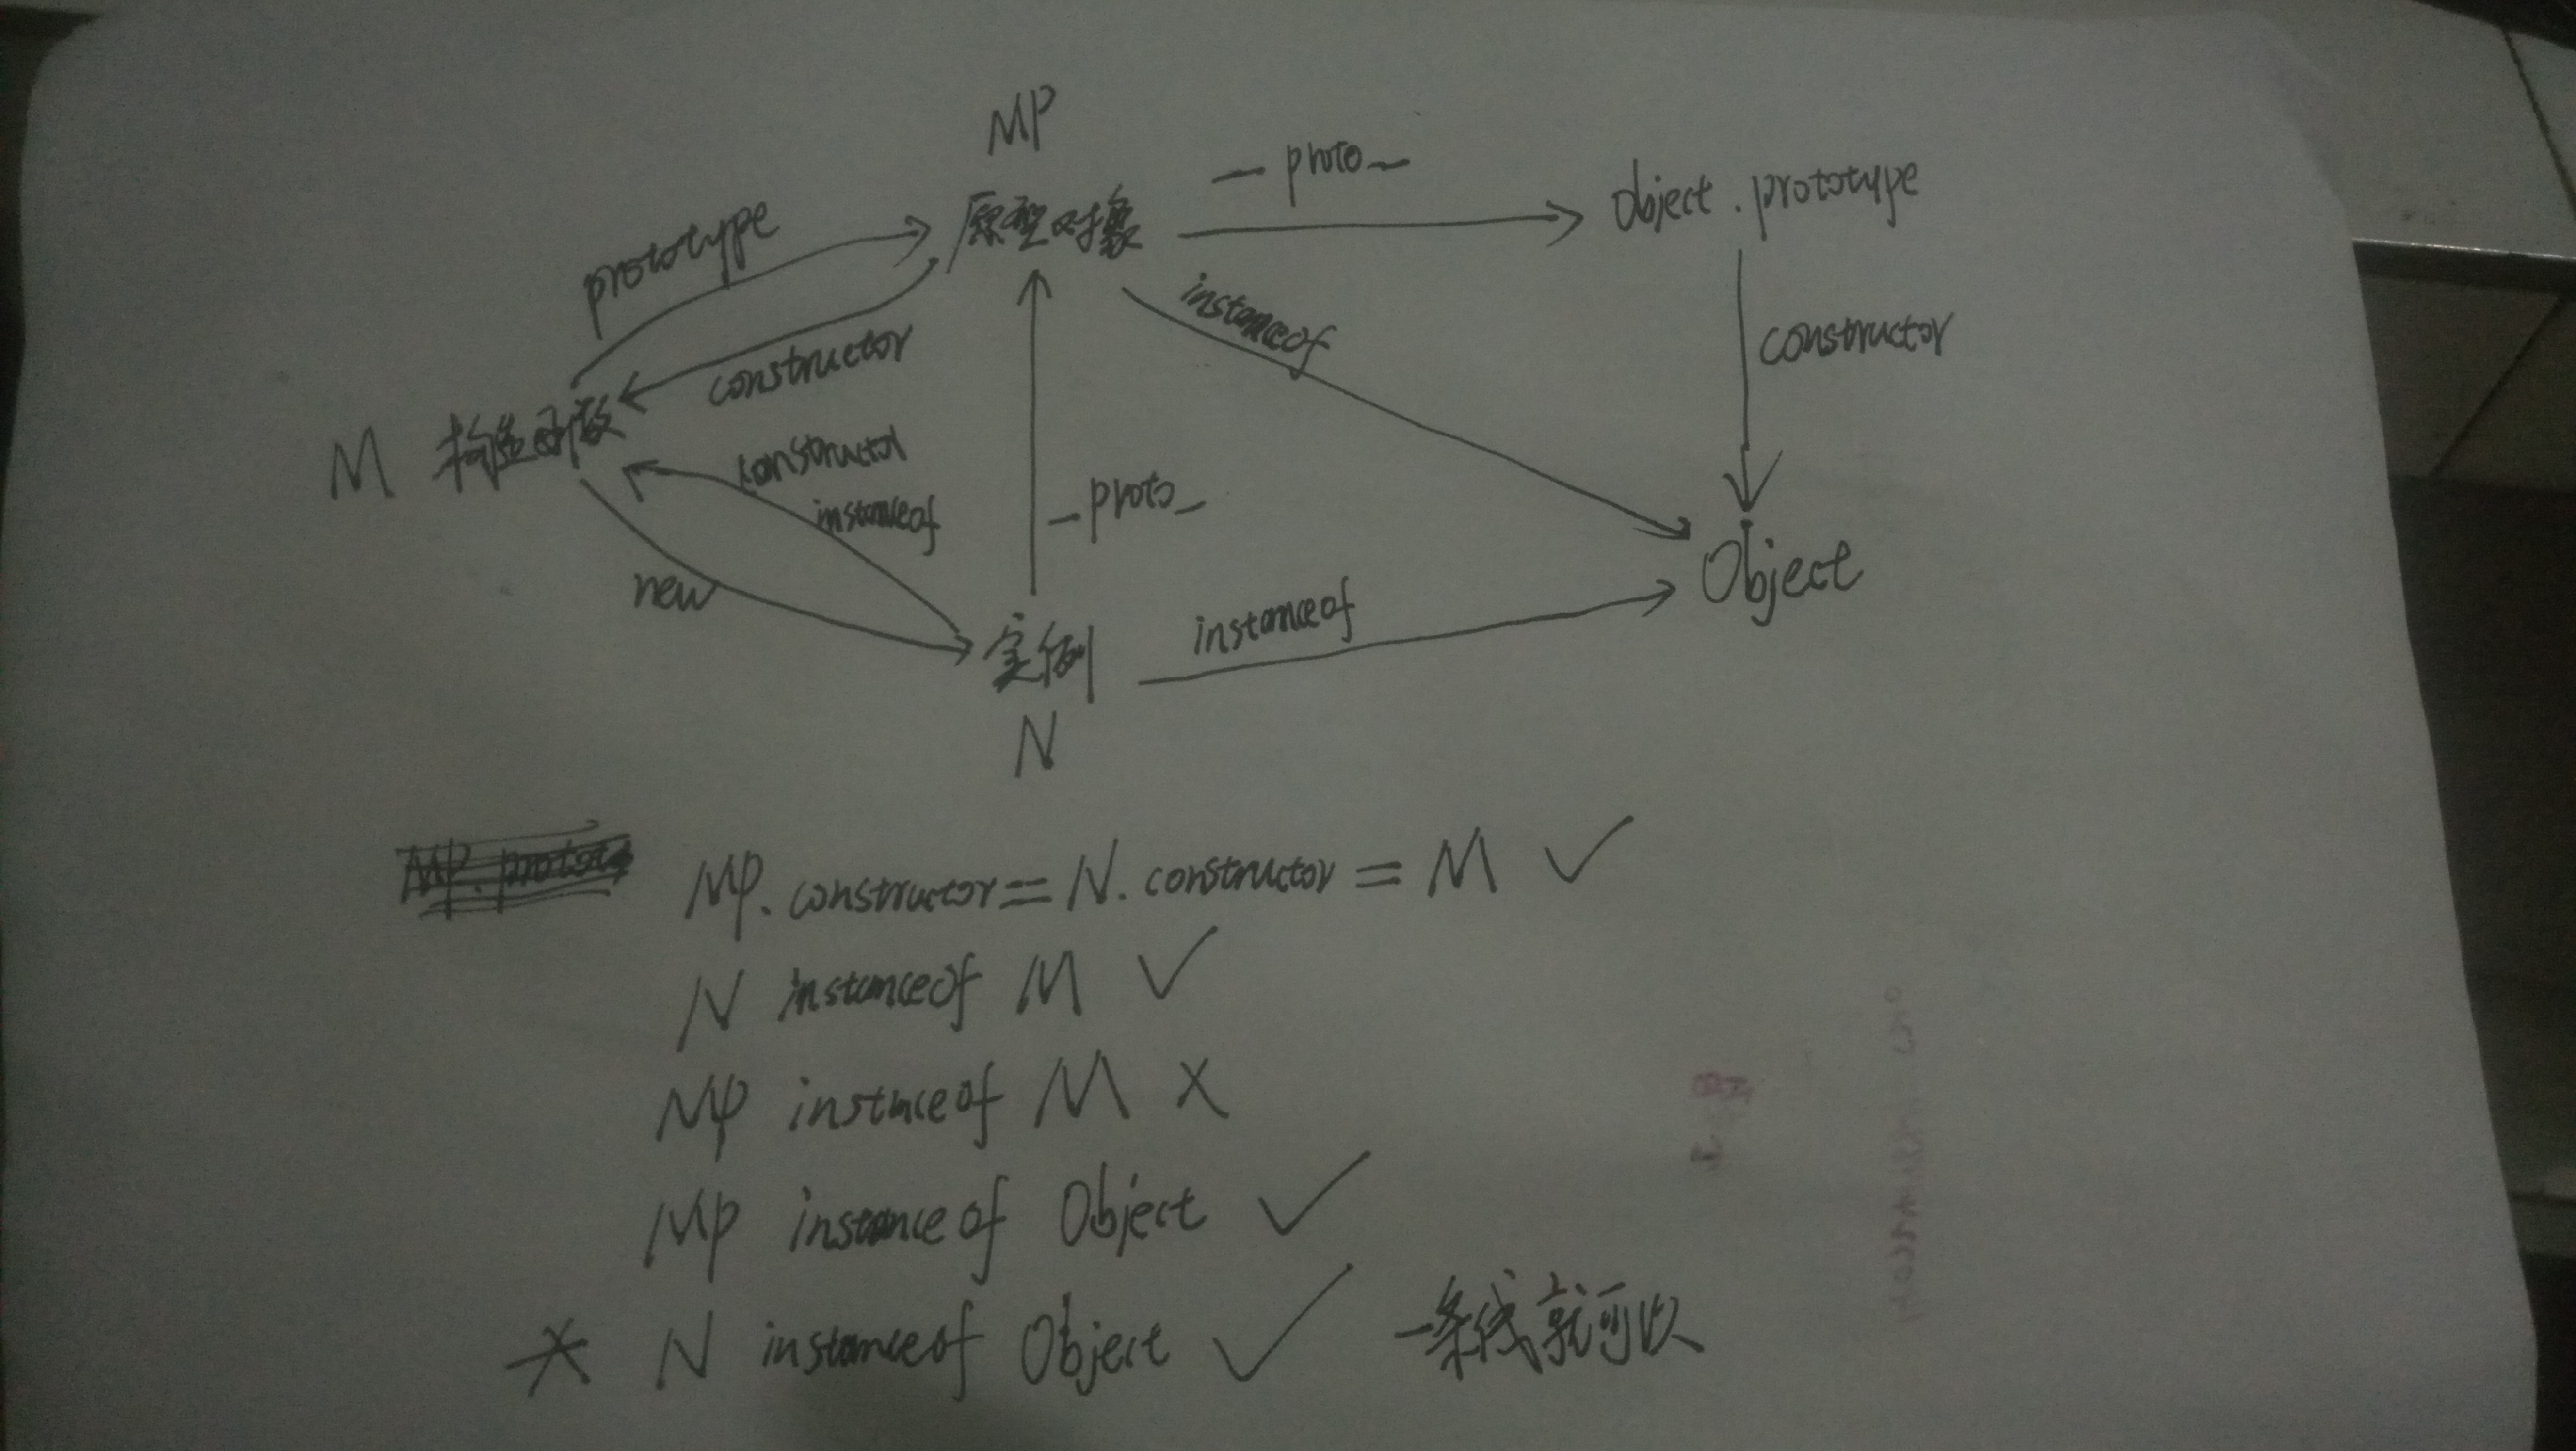 MP
原型对象
_ proto _
object . prototype
prototype
constructor
instanceof
constructor
M 构造函数
constructor
instanceof
_ proto _
new
实例
instanceof
Object
N
MP.constructor = N.constructor = M ✓
N instanceof M ✓
MP instnceof M ×
MP instanceof Object ✓
* N instanceof Object ✓ 一条线就可以